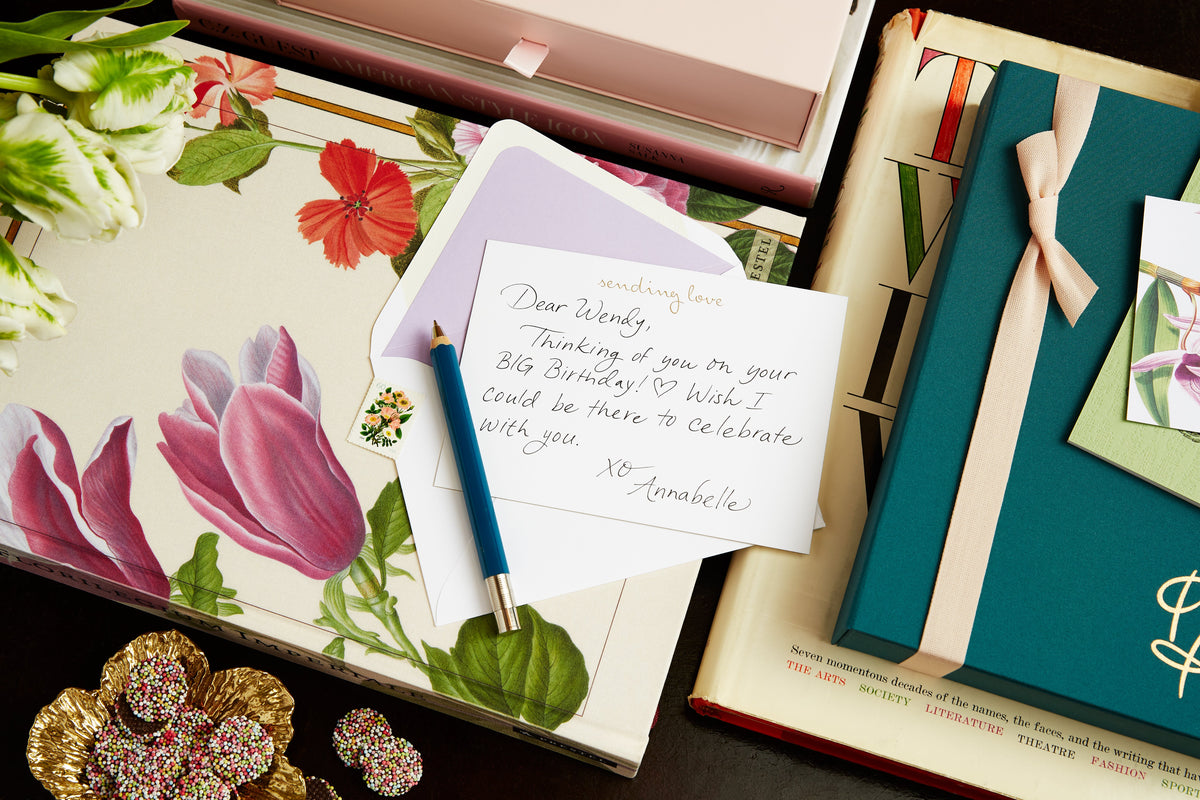 C.Z. GUEST AMERICAN STYLE ICON
SUSANNA
sending love
Dear Wendy,
Thinking of you on your
BIG Birthday! ♡ Wish I
could be there to celebrate
with you.
xo
Annabelle
ESTEL
FLORILEGIUM IMPERIALE
Seven momentous decades of the names, the faces, and the writing that ha
THE ARTS SOCIETY LITERATURE THEATRE FASHION SPORT